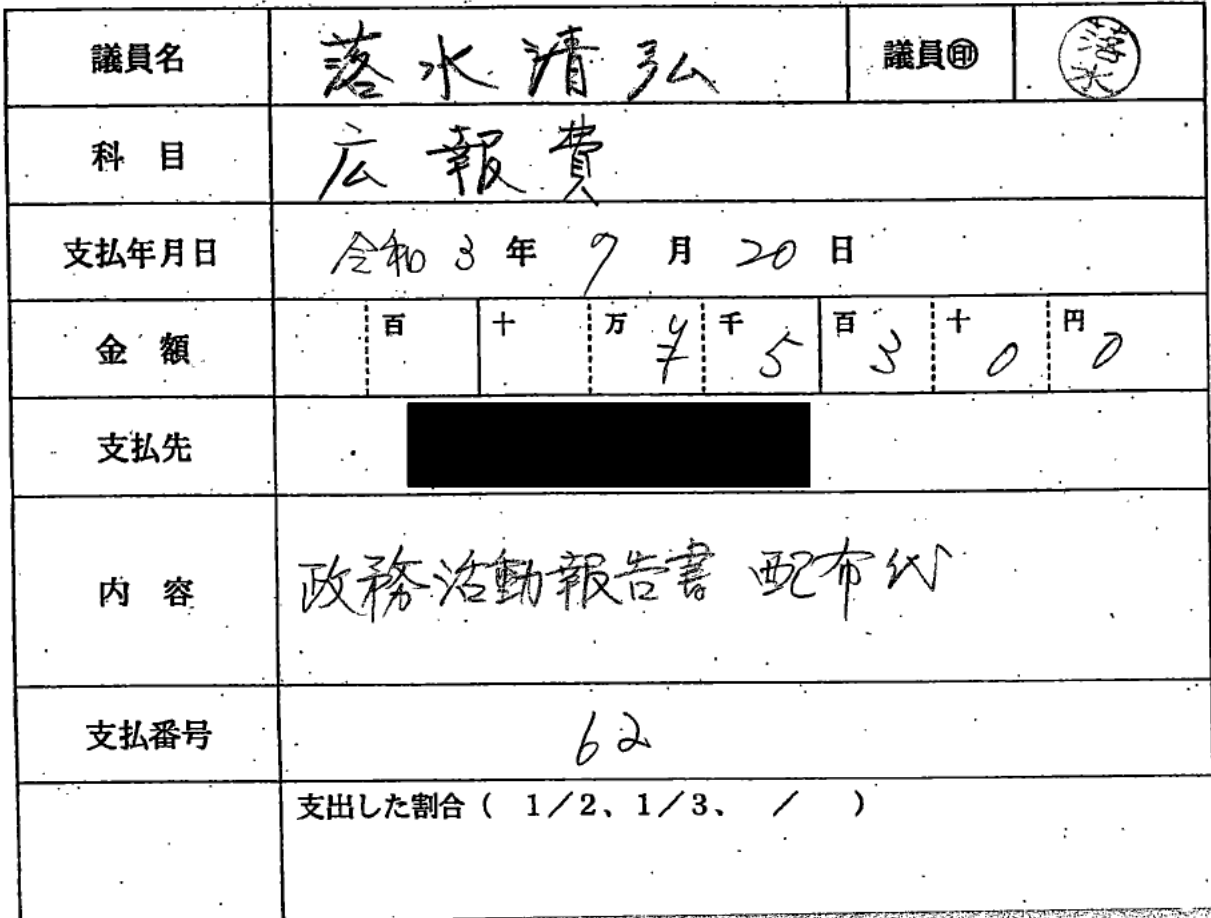 議員名 落水清弘 議員㊞ 落水
科 目 広報費
支払年月日 令和3年9月20日
金 額 百 十 万 千5 百3 十0 円0
支払先
内 容 政務活動報告書 配布代
支払番号 62
支出した割合（ 1／2、1／3、 ／ ）